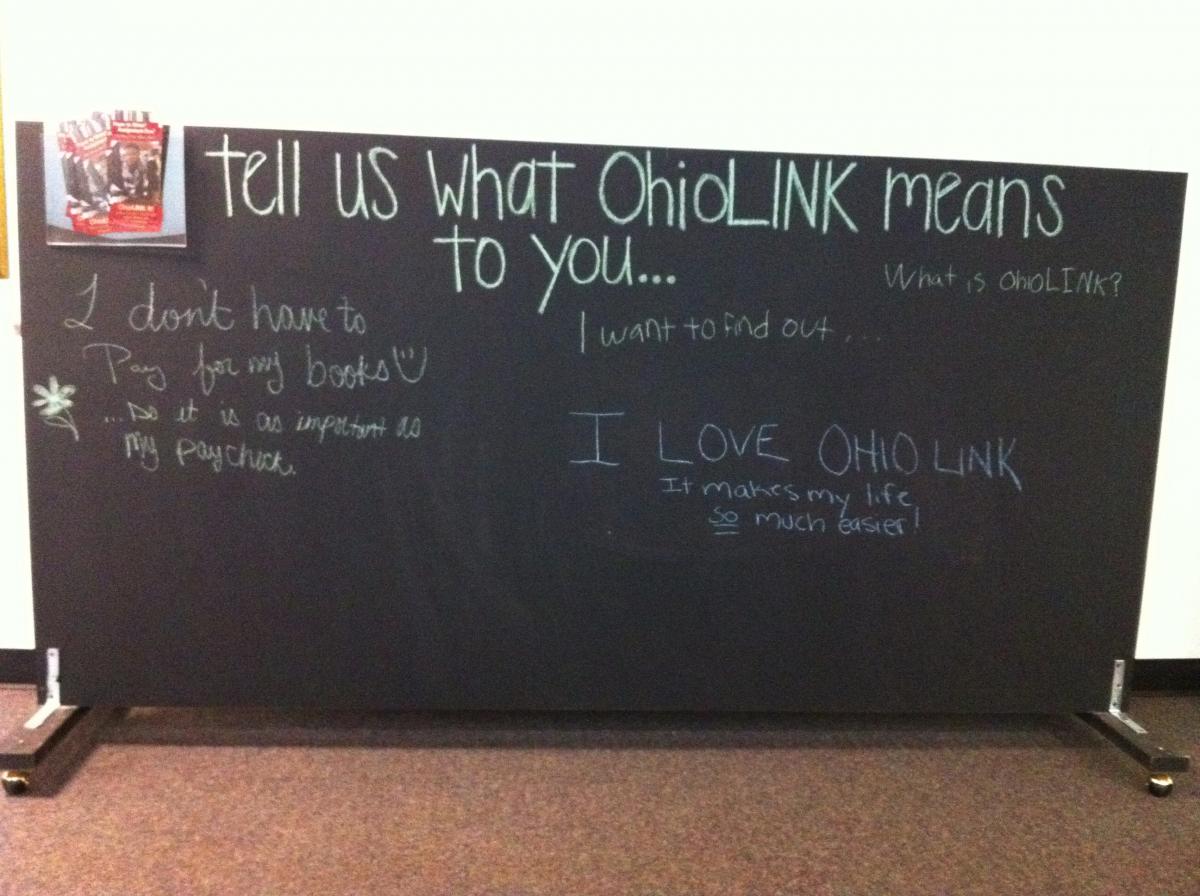 tell us what OhioLINK means
to you...
What is OhioLINK?
I want to find out...
I don't have to
Pay for my books
...so it is as important as
my paycheck.
I LOVE OHIO LINK
It makes my life
so much easier!